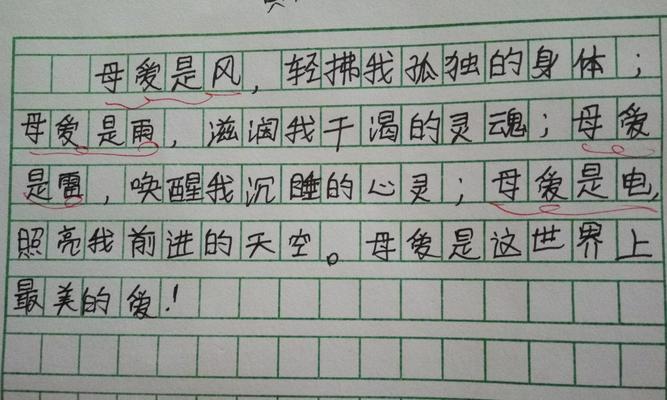 母爱是风，轻拂我孤独的身体；
母爱是雨，滋润我干渴的灵魂；母爱
是雷，唤醒我沉睡的心灵；母爱是电，
照亮我前进的天空。母爱是这世界上
最美的爱！